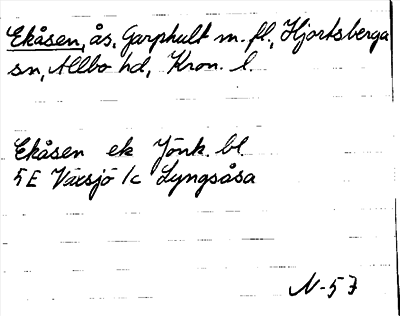 Ekåsen, ås, Garphult m. fl., Hjortsberga
sn, Allbo hd, Kron. l.
Ekåsen ek Jönk. bl.
5E Växsjö 1c Lyngsåsa
N-57